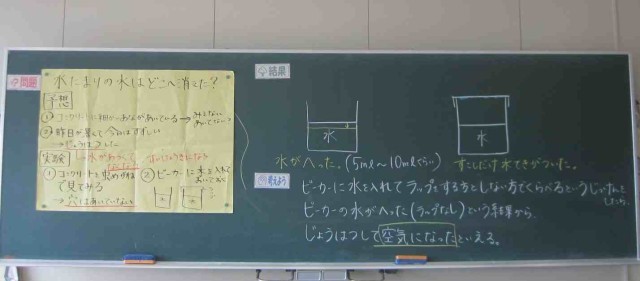 問題
水たまりの水はどこへ消えた?
予想
① コンクリートに細かいあながあいている
② 昨日が暑くて今日はすずしい
実験
① コンクリートを
で見てみる
② ビーカーに水を入れて
結果
水
水
水がへった。(5ml〜10mlぐらい)
すこしだけ水てきがついた。
考えよう
ビーカーに水を入れてラップをする方としない方でくらべるというじっけんを
したら、
ビーカーの水がへった(ラップなし)という結果から、
じょうはつして空気になったといえる。